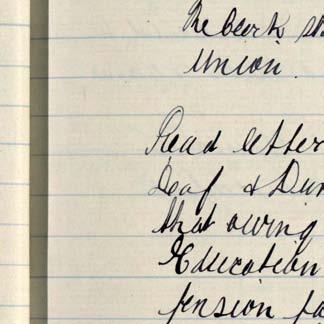 The Clerk
Union.
Read letter
Deaf & Dum
that owing
Education
pension fa